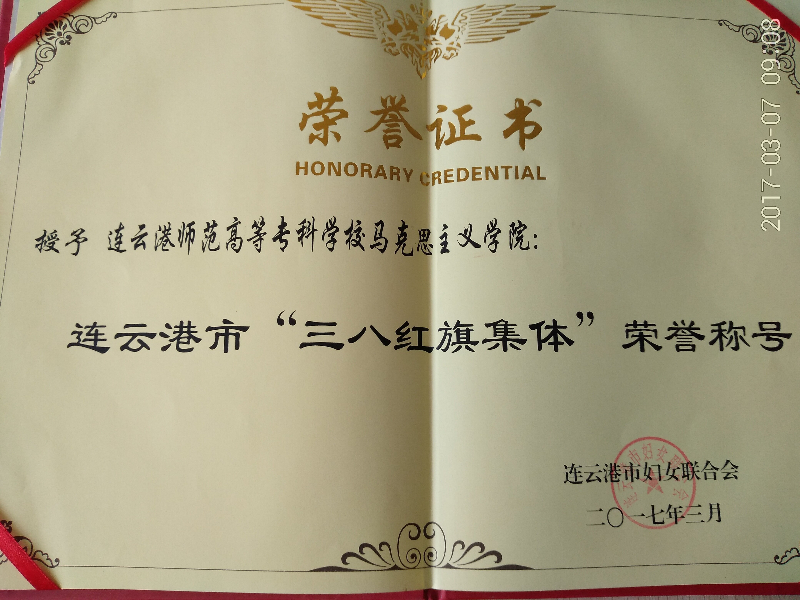 荣誉证书
HONORARY CREDENTIAL
授予 连云港师范高等专科学校马克思主义学院：
连云港市“三八红旗集体”荣誉称号
连云港市妇女联合会
二〇一七年三月
2017-03-07 09:08